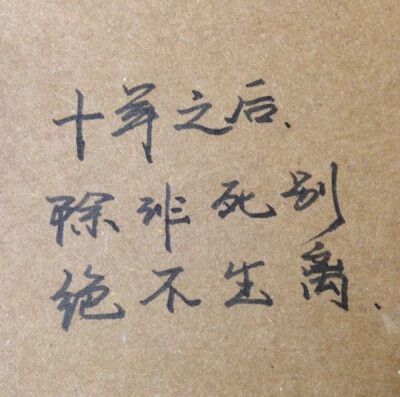 十年之后、
除非死别
绝不生离、